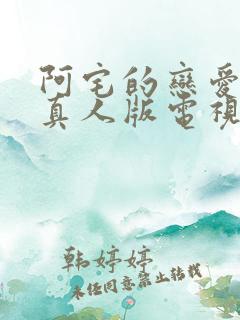 阿宅的戀愛
真人版電視
韩婷婷
未经同意禁止转载